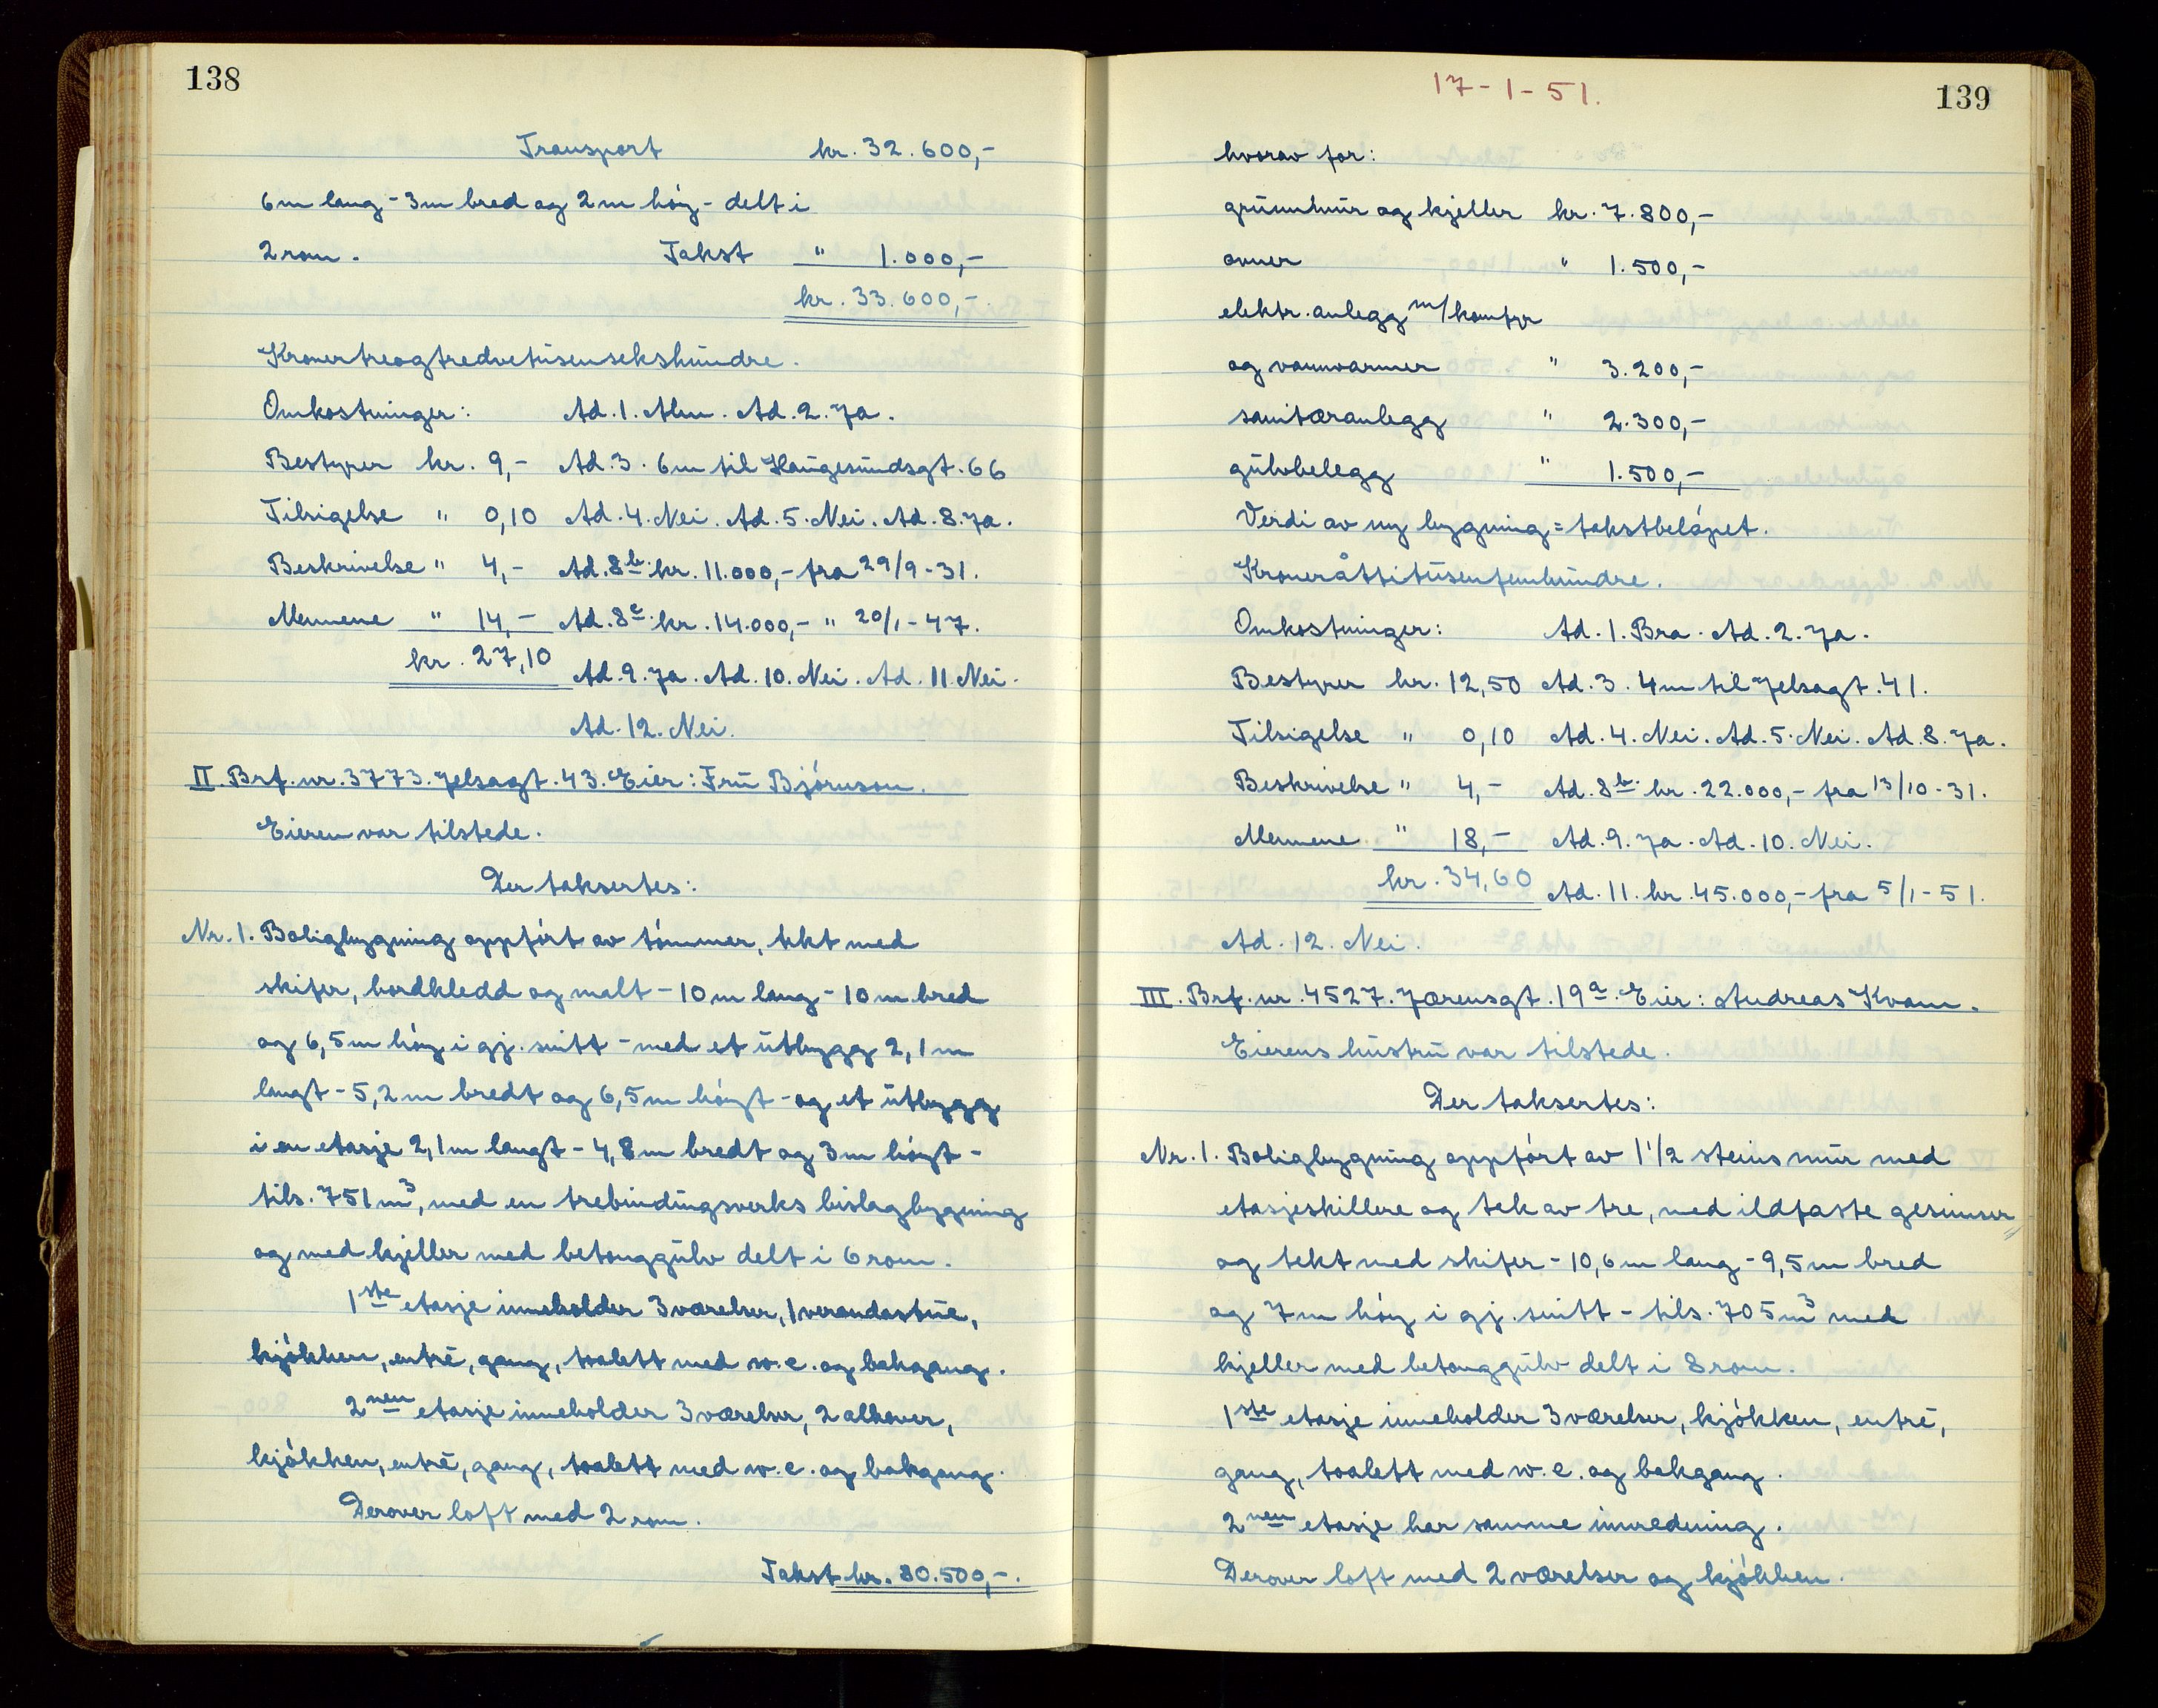 138
Transport kr. 32.600,-
6m lang - 3m bred og 2m høy - delt i
2 rom. Takst " 1.000,-
kr. 33.600,-.
Kronertreogtredvetusensekshundre.
Omkostninger: Ad. 1. Alm. Ad. 2. Ja.
Bestyrer kr. 9,- Ad. 3. 6m til Haugesundsgt. 66
Tilsigelse " 0,10 Ad. 4. Nei. Ad. 5. Nei. Ad. 8. Ja.
Beskrivelse " 4,- Ad. 8b. kr. 11.000,- fra 29/9-31.
Mennene " 14,- Ad. 8c. kr. 14.000,- " 20/1-47.
kr. 27,10 Ad. 9. Ja. Ad. 10. Nei. Ad. 11. Nei.
Ad. 12. Nei.
II. Brf. nr. 3773. Jelsagt. 43. Eier: Fru Bjórnson.
Eieren var tilstede.
Der taksertes:
Nr. 1. Boligbygning oppfórt av tómmer, tekt med
skifer, bordkledd og malt - 10m lang - 10m bred
og 6,5m hóy i gj. snitt - med et utbygg 2,1m
langt - 5,2m bredt og 6,5m hóyt - og et utbygg
i en etasje 2,1m langt - 4,8m bredt og 3m hóyt -
tils. 751m³, med en trebindingsverks bislagbygning
og med kjeller med betonggulv delt i 6 rom.
1ste etasje inneholder 3 værelser, 1 verandastue,
kjókken, entré, gang, toalett med w.c. og bakgang.
2nen etasje inneholder 3 værelser, 2 alkover,
kjókken, entré, gang, toalett med w.c. og bakgang.
Derover loft med 2 rom.
Takst kr. 80.500,-.
17-1-51.
139
hvorav for:
grunnmur og kjeller kr. 7.800,-
ovner " 1.500,-
elektr. anlegg m/komfyr
og vannvarmer " 3.200,-
sanitæranlegg " 2.300,-
gulvbelegg " 1.500,-
Verdi av ny bygning = takstbelópet.
Kroneråttitusenfemhundre.
Omkostninger: Ad. 1. Bra. Ad. 2. Ja.
Bestyrer kr. 12,50 Ad. 3. 4m til Jelsagt. 41.
Tilsigelse " 0,10 Ad. 4. Nei. Ad. 5. Nei. Ad. 8. Ja.
Beskrivelse " 4,- Ad. 8b. kr. 22.000,- fra 13/10-31.
Mennene " 18,- Ad. 9. Ja. Ad. 10. Nei.
kr. 34,60 Ad. 11. kr. 45.000,- fra 5/1-51.
Ad. 12. Nei.
III. Brf. nr. 4527. Jærensgt. 19a. Eier: Andreas Kvam.
Eierens hustru var tilstede.
Der taksertes:
Nr. 1. Boligbygning oppfórt av 1 1/2 steins mur med
etasjeskillere og tek av tre, med ildfaste gesimser
og tekt med skifer - 10,6m lang - 9,5m bred
og 7m hóy i gj. snitt - tils. 705m³ med
kjeller med betonggulv delt i 8 rom.
1ste etasje inneholder 3 værelser, kjókken, entré,
gang, toalett med w.c. og bakgang.
2nen etasje har samme innredning.
Derover loft med 2 værelser og kjókken.